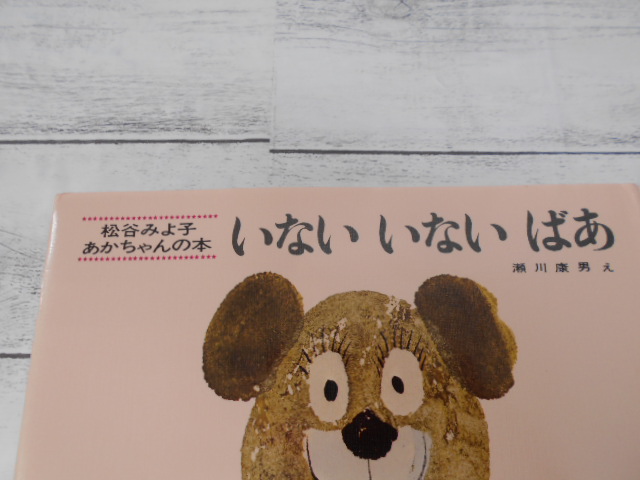 松谷みよ子
あかちゃんの本
いない いない ばあ
瀬川康男 え